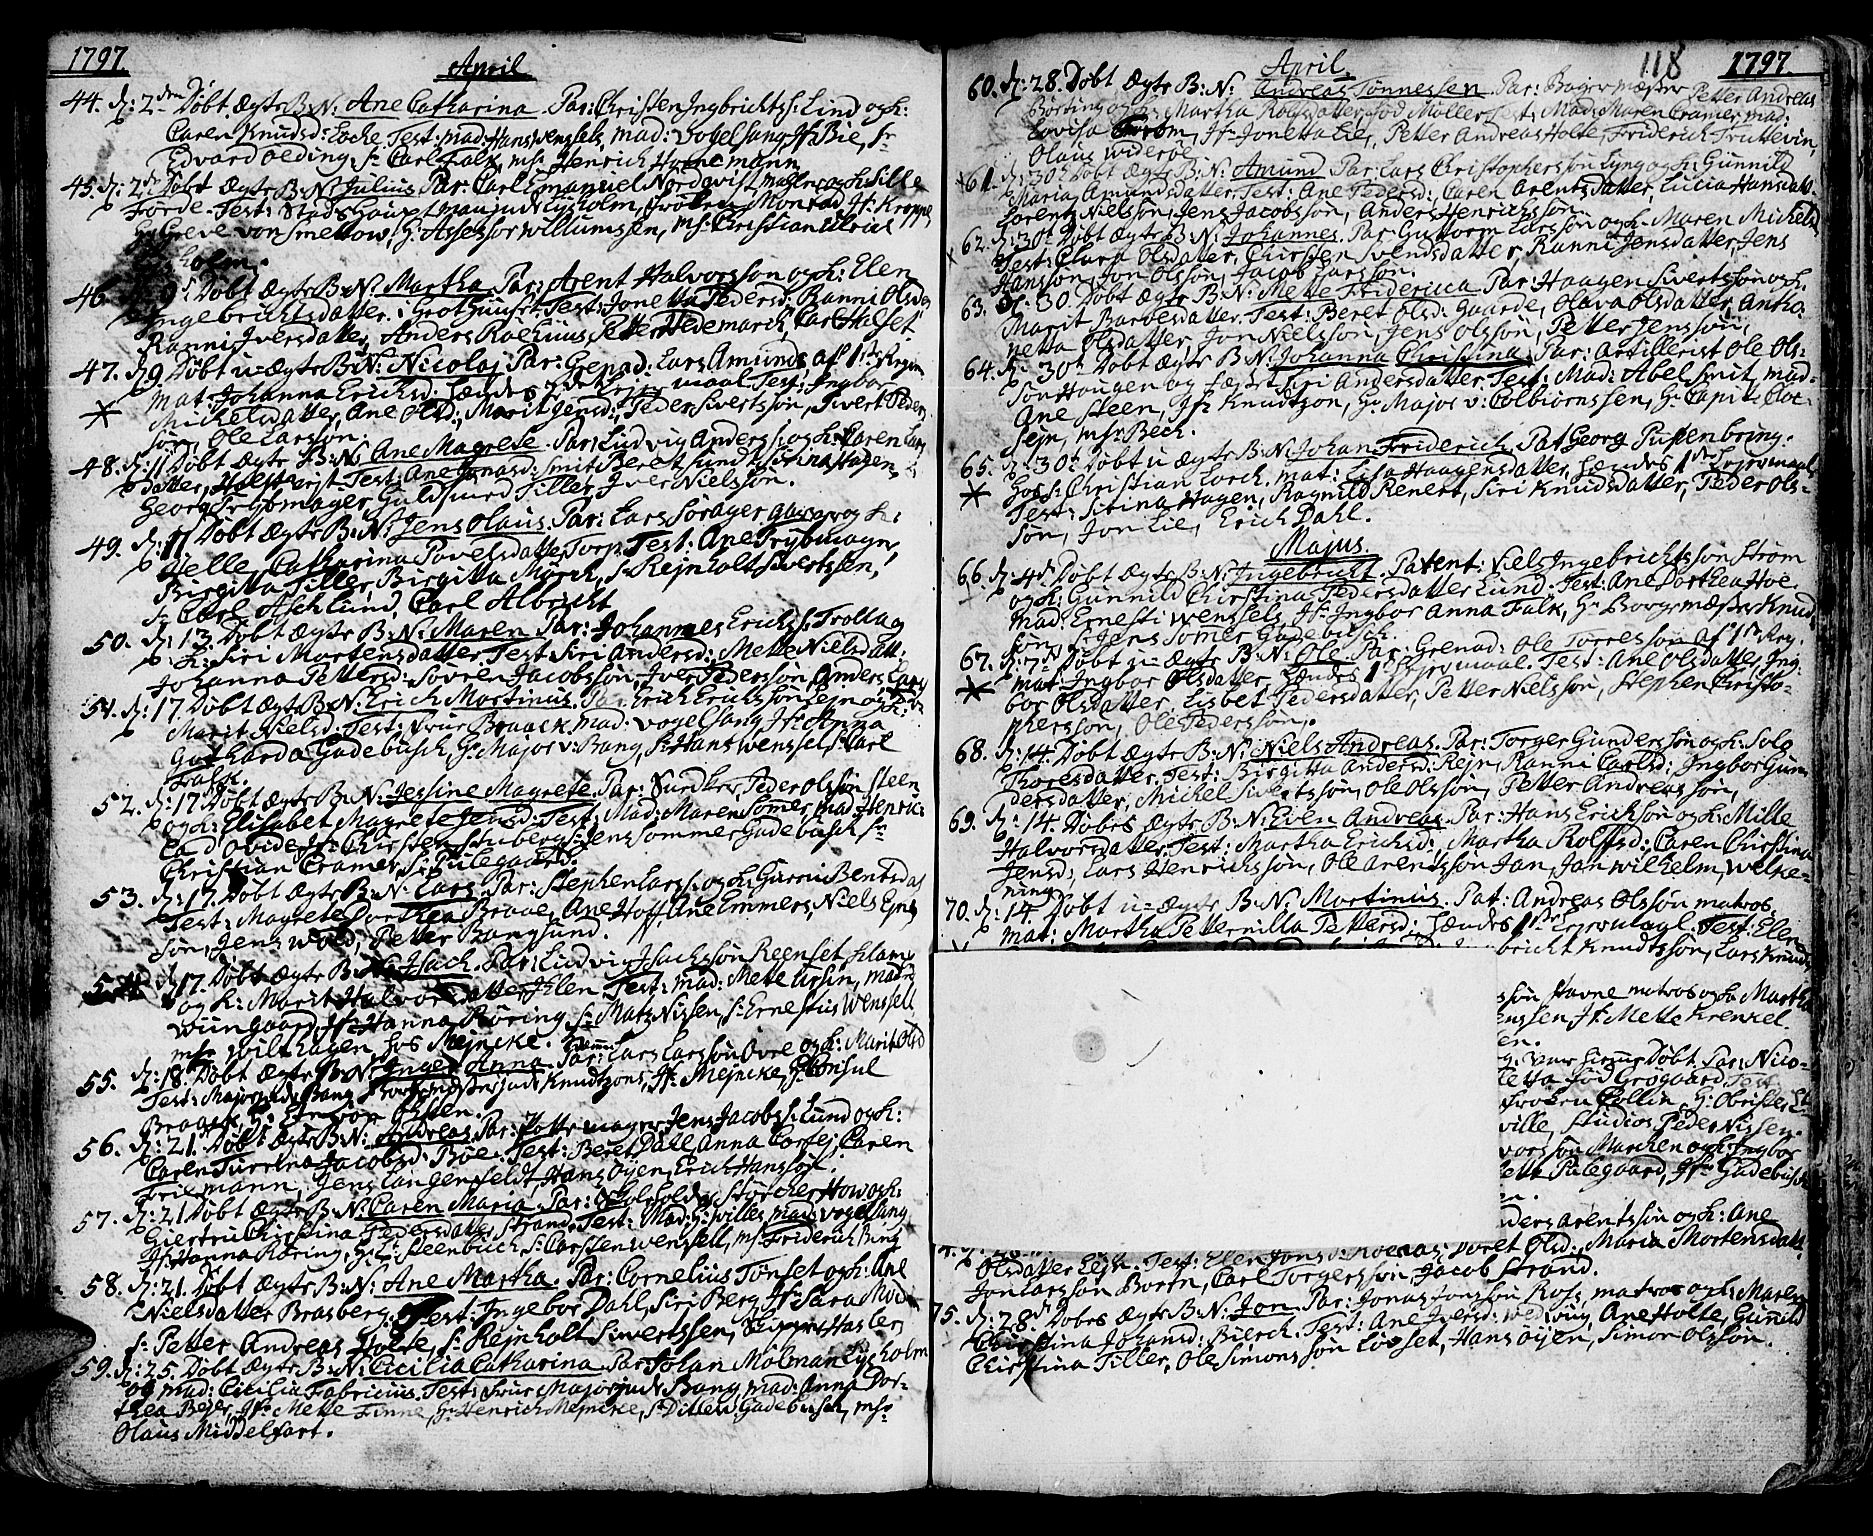 1797
April
44. d: 2den Døbt Ægte B: N: Ane Catharina. Par: Christen Ingbrichts: Lind og h:
Caren Knudsd: Locke. Test: mad: Hans Wensels, mad: Vogelsang, Jfr Bie, Sr
Edvard Oeding, Sr Carl Falk, msr Henrich Hornemann
45. d: 2d Døbt Ægte B: N: Julius. Par: Carl Emanuel Nordqvist, mahler og h: Sille
Førde. Test: Stads Hauptmanjnde Lysholm, Frøken Monrad, Jfr Kroppe,
Hr Greve von Smettow, Hr Assessor Willumsen, msr Christian Ulrich
holm.
46. d: 9d Døbt Ægte B: N: Martha. Par: Arent Halvorssøn og h: Elen
Ingebrichtsdatter. i Grothuuset. Test: Jonetta Pedersd: Ranni Olsd:
Ranni Iversdatter, Anders Petter Hedemarck, Carl Halset
47. d: 9. Døbt u-ægte B: N: Nicolaj. Par: Grenad: Lars Amunds: af 1ste Regim
mat: Johanna Ericksd: hendes 2det Leiermaal. Test: Ingbor
Michelsdatter, Ane Olsd: Marit Jensd: Peder Sivertssøn, Sivert Peder-
søn, Ole Larssøn.
48. d: 11 Døbt Ægte B: N: Ane Magrete. Par: Ludvig Anders: og h: Caren Lars
datter, Test: Ane Jonasd: Smit, Beret Sund, Sirina Hagen,
Georg Trybmager, Guldsmed Tiller, Iver Nielssøn.
49. d: 11 Døbt Ægte B: N: Jens Olaus. Par: Lars Sørager og h:
Helle Catharina Povelsdatter Torp. Test: Ane Trybmagers,
Birgitta Tiller, Birgitta Mørch, Sr Rejnholt Sivertssen,
Sr Carl Aschlund, Carl Albricht
50. d: 13. Døbt Ægte B: N: Maren. Par: Johannes Ericks: Trolla og
h: Siri Mortensdatter. Test: Siri Andersd: Mette Nielsdatt:
Johanna Pettersd: Søvren Jacobssøn, Iver Pederssøn, Anders Lars
51. d: 17. Døbt Ægte B: N: Erich Martinus. Par: Erich Ericksøn Lejn og h:
Marit Nielsd: Test: Frue Braack, mad: Vogelsang, Jfr Anna
Gotharda Gadebusch, Hr Major v: Bang, Sr Hans Wensel, Sr Carl
Falck.
52. d: 17. Døbt Ægte B: N: Jessine Magrete. Par: Peder Olssøn Steen
og h: Elisabet Magrete Jensd: Test: Mad: Maren Sommer, mad: Henric-
Christen Stuberg, Sr Jens Sommer Gadebusch, Sr
Christian Cramer, Sr Pulegaard.
53. d: 17. Døbt Ægte B: N: Lars. Par: Stephen Larss: og h: Gurrni Bentsdat
Test: Magrete Dorthea Braae, Ane Hoff, Ane Emmers, Niels Ejnes
søn, Jens Wold, Petter Banglund.
54. d: 17. Døbt Ægte B: N: Isach. Par: Ludvig Isachssøn Reenset, Klam-
og h: Marit Halvorsdatter Ihlen. Test: mad: Mette Ursin, mad:
Wiingaard, Jfr Hanna Røring, Sr Matz Nissen, Sr Ernestus Wensell
msr Wilthagen hos Mejncke.
55. d: 18. Døbt Ægte B: N: Inger Anna. Par: Lars Larssøn Øvre og h: Marit Olsd
Test: Majorinde Bang, Borgemesterjnde Knudtzons, Jfr Mejncke, Hr Consul
Braack,
56. d: 21. Døbt Ægte B: N: Andreas. Par: Pottemager Jens Jacobs: Lund og h:
Caren Turrina Jacobsd: Bøe. Test: Beret Dahl, Anna Corfej, Caren
Friemann, Jens Langenfeldt, Hans Øyen, Erich Hanssøn.
57. d: 21 Døbt Ægte B: N: Caren Maria. Par: Størcker How og h:
Giertru Christina Pedersdatter Strand. Test: Mad: Hr. Willes, mad: Vogelsang
Jfr Hanna Røring, Hr Lt Steenbuch, Sr Carsten Wensell, msr Friderich Bing
58. d: 21. Døbt Ægte B: N: Ane Martha. Par: Cornelius Tønset og h: Ane
Nielsdatter Brasberg. Test: Ingebor Dahl, Siri Berg, Jfr Sara Moe
Sr Petter Andreas Holte, Sr Rejnholt Sivertssen, Hasler,
59. d: 25. Døbt Ægte B: N: Cicilia Catharina. Par: Johan Mølman Lysholm
og mad: Cicilia Fabricius. Test: Frue Majorjnde Bang, mad: Anna Dor-
thea Bejer, Jfr Mette Finne, Hr Henrich Mejncke, Sr Ditlew Gadebusch, msr
Olaus Middelfart.
April
118
1797
60. d: 28. Døbt Ægte B: N: Andreas Tønnessen. Par: Bagermester Petter Andreas
Børting og h: Martha Rolfsdatter fød Møller. Test: Mad: Maren Cramer, mad:
Lovisa Strøm, Jfr Jonetta Lie, Petter Andreas Holte, Friderich Truttevin,
Olaus Widerøe
61. d: 30. Døbt Ægte B: N: Amund. Par: Lars Christopherssøn Lyng og h: Gunnild
Maria Amundsdatter. Test: Ane Pedersd: Caren Arentsdatter, Lucia Hansdat.
Lorents Nielssøn, Jens Jacobssøn, Anders Henrichssøn.
62. d: 30. Døbt Ægte B: N: Johannes. Par: Guttorm Larssøn og h: Maren Michelsd
Test: Clara Olsdatter, Chirsten Svendsdatter, Ranni Jensdatter, Jens
Hanssøn, Jon Olssøn, Jacob Larssøn.
63. d: 30. Døbt Ægte B: N: Mette Fridericca. Par: Haagen Sivertssøn og h:
Marit Barbesdatter. Test: Beret Olsd: Gaarde, Olava Olsdatter, Antho-
netta Olsdatter, Jon Nielssøn, Jens Olssøn, Petter Jenssøn,
64. d: 30. Døbt Ægte B: N: Johanna Christina. Par: Artillerist Ole Ols:
søn Haugen og Siri Andersdatter. Test: Mad: Abel Smit, mad:
Ane Steen, Jfr Knudtzon, Hr Major v: Colbiørnssen, Hr Capit: Cloc-
sejn, msr Bech.
65. d: 30. Døbt u-ægte B: N: Johan Friderich. Pat: Georg Pussenbring.
hos Christian Lorck. mat: Lisa Haagensdatter, hendes 1ste Lejermaal
Test: Sirina Hagen, Ragnild Renert, Siri Knudsdatter, Peder Ols-
søn, Jon Lie, Erich Dahl.
Majus.
66. d: 4d Døbt Ægte B: N: Ingebricht. Patent: Niels Ingebrichtssøn Strøm
og h: Gunnild Christina Pedersdatter Lund. Test: Ane Dorthea Hoe
Mad: Ernesti Wensels, Jfr Ingbor Anna Falk, Hr Borgemester Knud
søn, Sr Jens Somer Gadebusch.
67. d: 7d Døbt u-ægte B: N: Ole. Par: Grenad: Ole Torressøn af 1ste Reg.
mat: Ingbor Olsdatter, hendes 1ste Lejermaal. Test: Ane Olsdatter, Ing-
bor Olsdatter, Lisbet Pedersdatter, Petter Nielssøn, Stephen Christo-
pherssøn, Ole Pederssøn.
68. d: 14. Døbt Ægte B: N: Niels Andreas. Par: Torger Gunderssøn og h: Solo
Thoresdatter. Test: Birgitta Andersd: Rejn, Ranni Carlsd: Ingbor Gun-
dersdatter, Michel Sivertssøn, Ole Olssøn, Petter Andreassøn,
69. d: 14. Døbt Ægte B: N: Even Andreas. Par: Hans Erickssøn og h: Mille
Halvorsdatter. Test: Martha Erichsd: Martha Rolfsd: Caren Christina
Jensd: Lars Henrichssøn, Ole Arentssøn Jan, Jan Wilhelm, Welke-
ning
70. d: 14. Døbt u-ægte B: N: Martinus. Pat: Andreas Olssøn matros,
mat: Martha Petternilla Pettersd: hendes 1ste Lejermaal. Test: Elen
bricht Knudtssøn, Lars Knuds
søn Stavne matros og h: Martha
enssen, Jfr Mette Krenkel.
en.
var hieme Døbt. Par: Nico-
etta fød Grøgaard. Test
Frøken Collin, Hr Obristl:
ville, Studios: Peder Nissen.
vorssøn Marchen og h: Ingbor
ette Pulegaard, Jfr Gadebusch
en.
nders Arentssøn og h: Ane
Olsdatter Lejn. Test: Elen Jons Beret Olsd: Maria Mortensdatt.
Jon Larssøn Boren, Carl Torgerssøn, Jacob Strand.
75. d: 28d Døbt Ægte B: N: Jon. Par: Jonas Jonssøn Ross, matros og h: Maren
Christina Johansd: Bierch. Test: Ane Iversd: Ane Holte, Gunnild
Christina Tiller, Ole Simonssøn Løvset, Hans Øyen, Simon Olssøn.